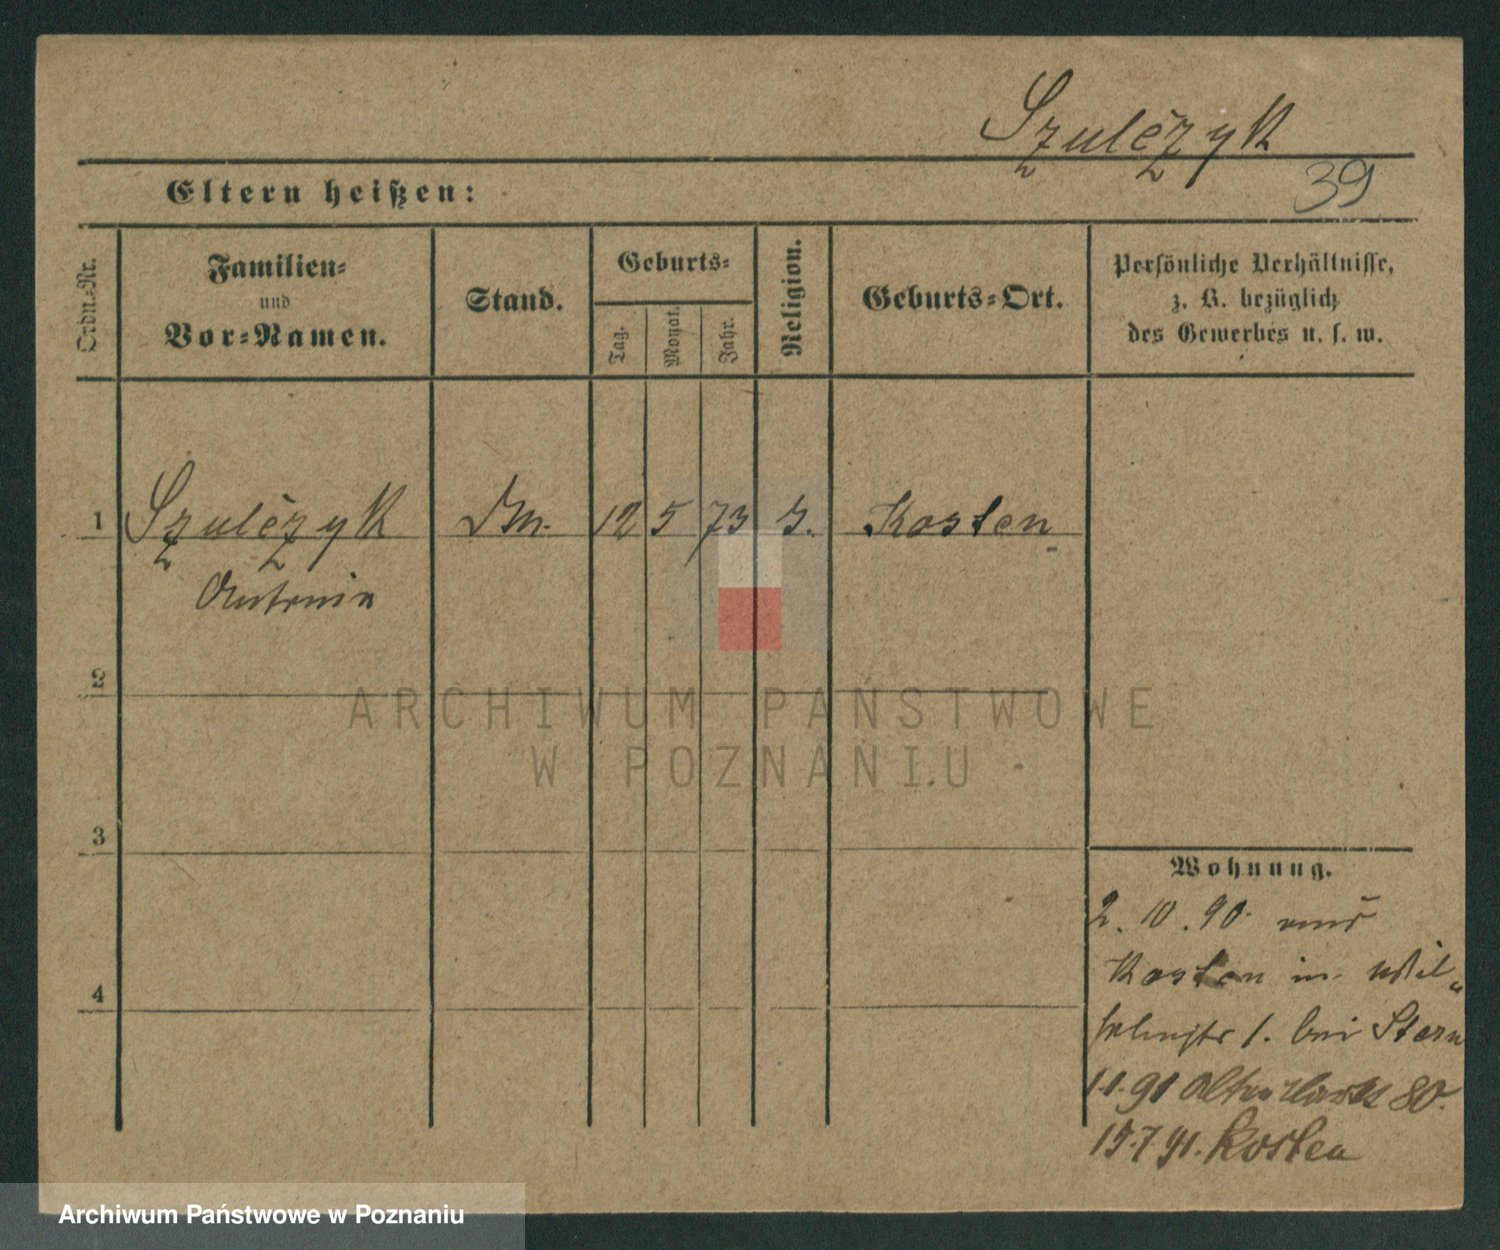 Szulczyk
39
Eltern heißen:
Ordn.-Nr.
Familien-
und
Vor-Namen.
Stand.
Geburts-
Tag.
Monat.
Jahr.
Religion.
Geburts-Ort.
Persönliche Verhältnisse,
z. B. bezüglich
des Gewerbes u. s. w.
1 Szulczyk 12 5 73 Kosten
Antonie
2
3
4
Wohnung.
2. 10. 90. aus
Kosten in Wil-
helmstr 1. bei Stern
1.1.91 Alter Markt 80.
15.7.91. Kosten
ARCHIWUM PAŃSTWOWE
W POZNANIU
Archiwum Państwowe w Poznaniu